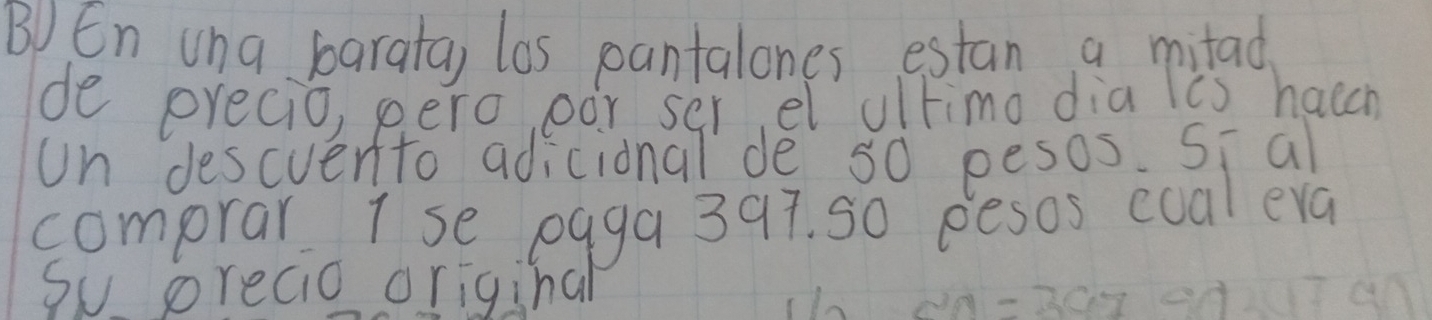 B) En una barata, los pantalones estan a mitad
de precio, pero por ser el ultimo dia les hacen
un descuento adicional de 50 pesos. Si al
comprar 1 se paga 397.50 pesos cual era
su precio original